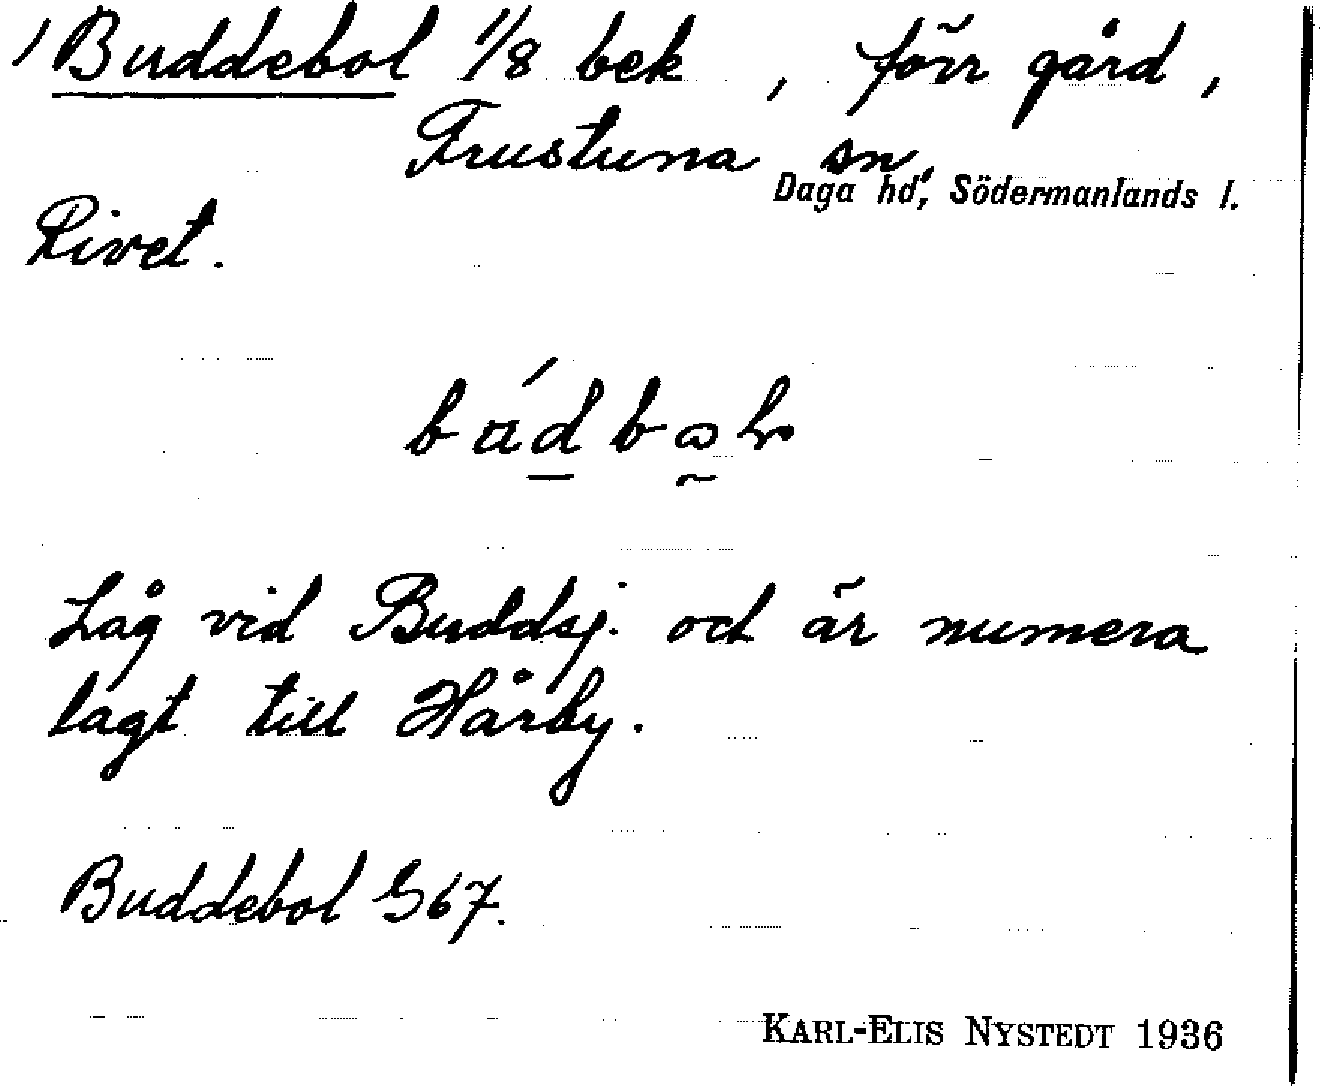 Buddebol 1/8 bek , förr gård ,
Frustuna sn,
Daga hd, Södermanlands l.
Rivet.
Låg vid Buddsj. och är numera
lagt till Hårby.
Buddebol G67.
KARL-ELIS NYSTEDT 1936